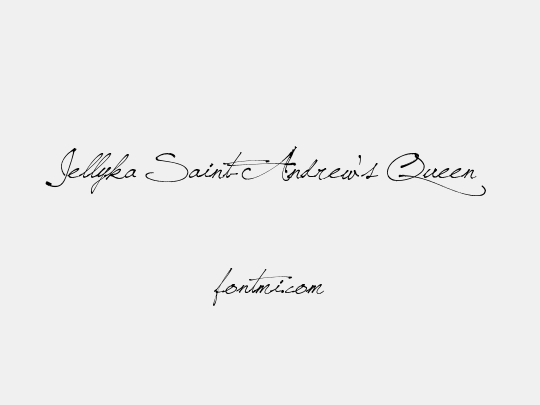 Jellyka Saint Andrew's Queen
fontmi.com